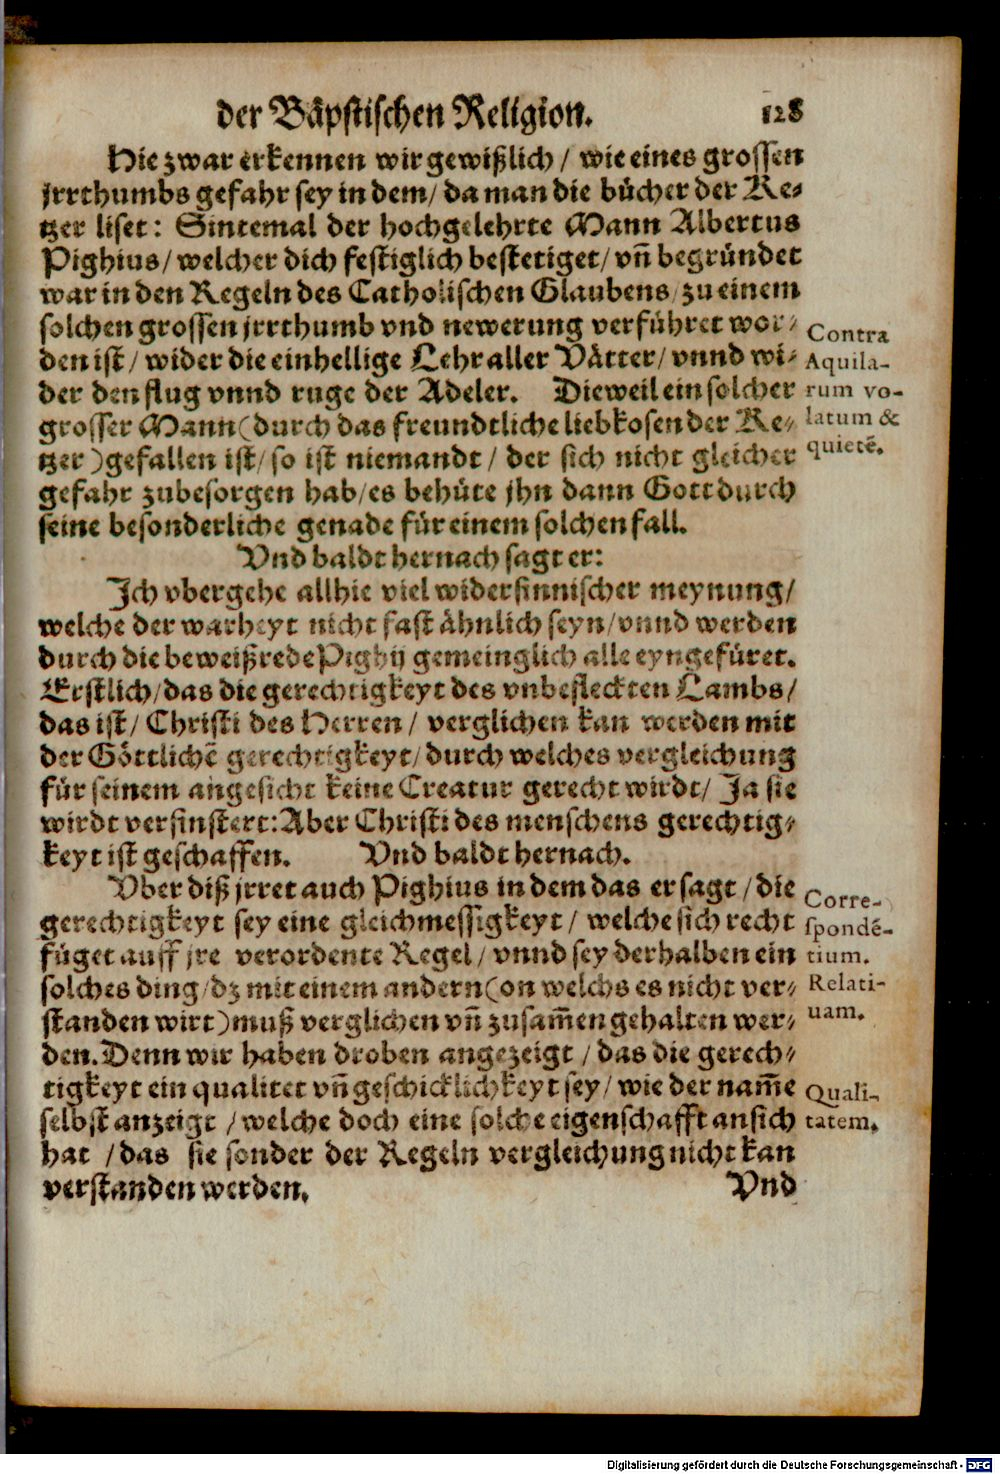 der Bäpstischen Religion. 128
Hie zwar erkennen wir gewißlich / wie eines grossen
jrrthumbs gefahr sey in dem / da man die bücher der Ke-
tzer liset: Sintemal der hochgelehrte Mann Albertus
Pighius / welcher dich festiglich bestetiget / vñ begründet
war in den Regeln des Catholischen Glaubens / zu einem
solchen grossen jrrthumb vnd newerung verführet wor-
den ist / wider die einhellige Lehr aller Vätter / vnnd wi-
der den flug vnnd ruge der Adeler. Dieweil ein solcher
grosser Mann (durch das freundtliche liebkosen der Ke-
tzer) gefallen ist / so ist niemandt / der sich nicht gleicher
gefahr zubesorgen hab / es behüte jhn dann Gott durch
seine besonderliche genade für einem solchen fall.
Contra
Aquila-
rum vo-
latum &
quietē.
Vnd baldt hernach sagt er:
Ich vbergehe allhie viel widersinnischer meynung /
welche der warheyt nicht fast ähnlich seyn / vnnd werden
durch die beweißrede Pighij gemeinglich alle eyngefüret.
Erstlich / das die gerechtigkeyt des vnbefleckten Lambs /
das ist / Christi des Herren / verglichen kan werden mit
der Göttlichē gerechtigkeyt / durch welches vergleichung
für seinem angesicht keine Creatur gerecht wirdt / Ja sie
wirdt verfinstert: Aber Christi des menschens gerechtig-
keyt ist geschaffen. Vnd baldt hernach.
Vber diß jrret auch Pighius in dem das er sagt / die
gerechtigkeyt sey eine gleichmessigkeyt / welche sich recht
füget auff jre verordente Regel / vnnd sey derhalben ein
solches ding / dz mit einem andern (on welchs es nicht ver-
standen wirt) muß verglichen vñ zusam̄en gehalten wer-
den. Denn wir haben droben angezeigt / das die gerech-
tigkeyt ein qualitet vñ geschicklichkeyt sey / wie der nam̄e
selbst anzeigt / welche doch eine solche eigenschafft an sich
hat / das sie sonder der Regeln vergleichung nicht kan
verstanden werden. Vnd
Corre-
spondē-
tium.
Relati-
uam.
Quali-
tatem.
Digitalisierung gefördert durch die Deutsche Forschungsgemeinschaft - DFG